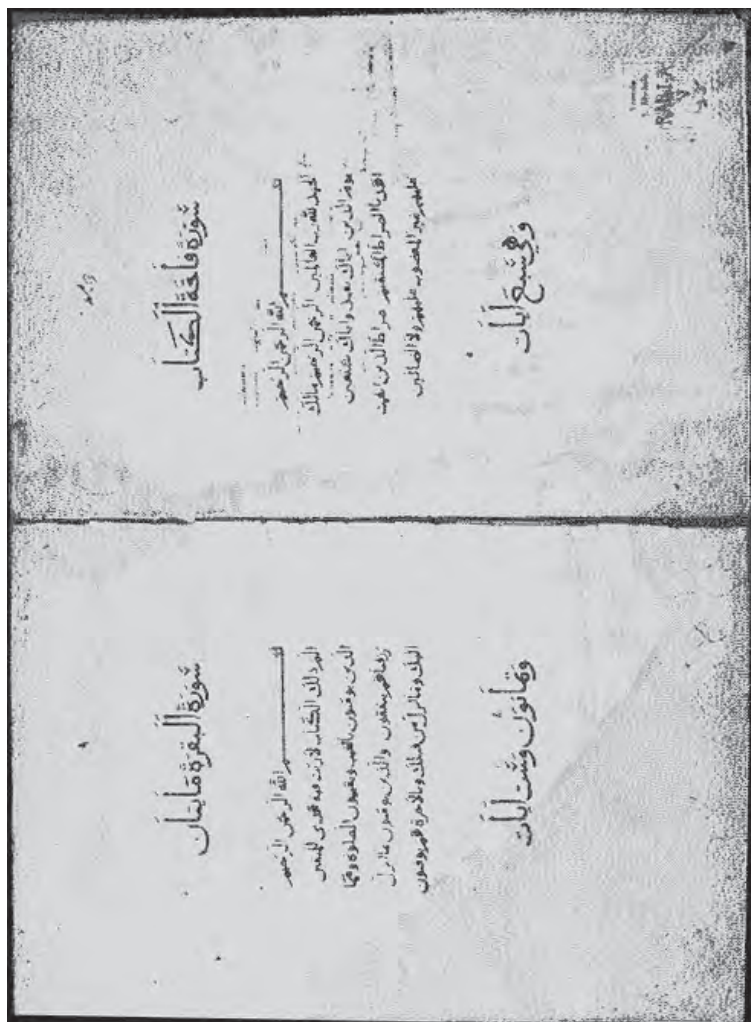 سُورَةُ فَاتِحَةِ الْكِتَابِ
بسم الله الرحمن الرحيم
الحمد لله رب العالمين الرحمن الرحيم مالك
يوم الدين اياك نعبد واياك نستعين
اهدنا الصراط المستقيم صراط الذين انعمت
عليهم غير المغضوب عليهم ولا الضالين
وَهِيَ سَبْعُ آيَات
سُورَةُ الْبَقَرَةِ مَايَتَان
بسم الله الرحمن الرحيم
الم ذلك الكتاب لا ريب فيه هدى للمتقين
الذين يومنون بالغيب ويقيمون الصلوة ومما
رزقناهم ينفقون والذين يومنون بما انزل
اليك وما انزل من قبلك وبالاخرة هم يوقنون
وَثَمَانُونَ وَسِتُّ آيَات